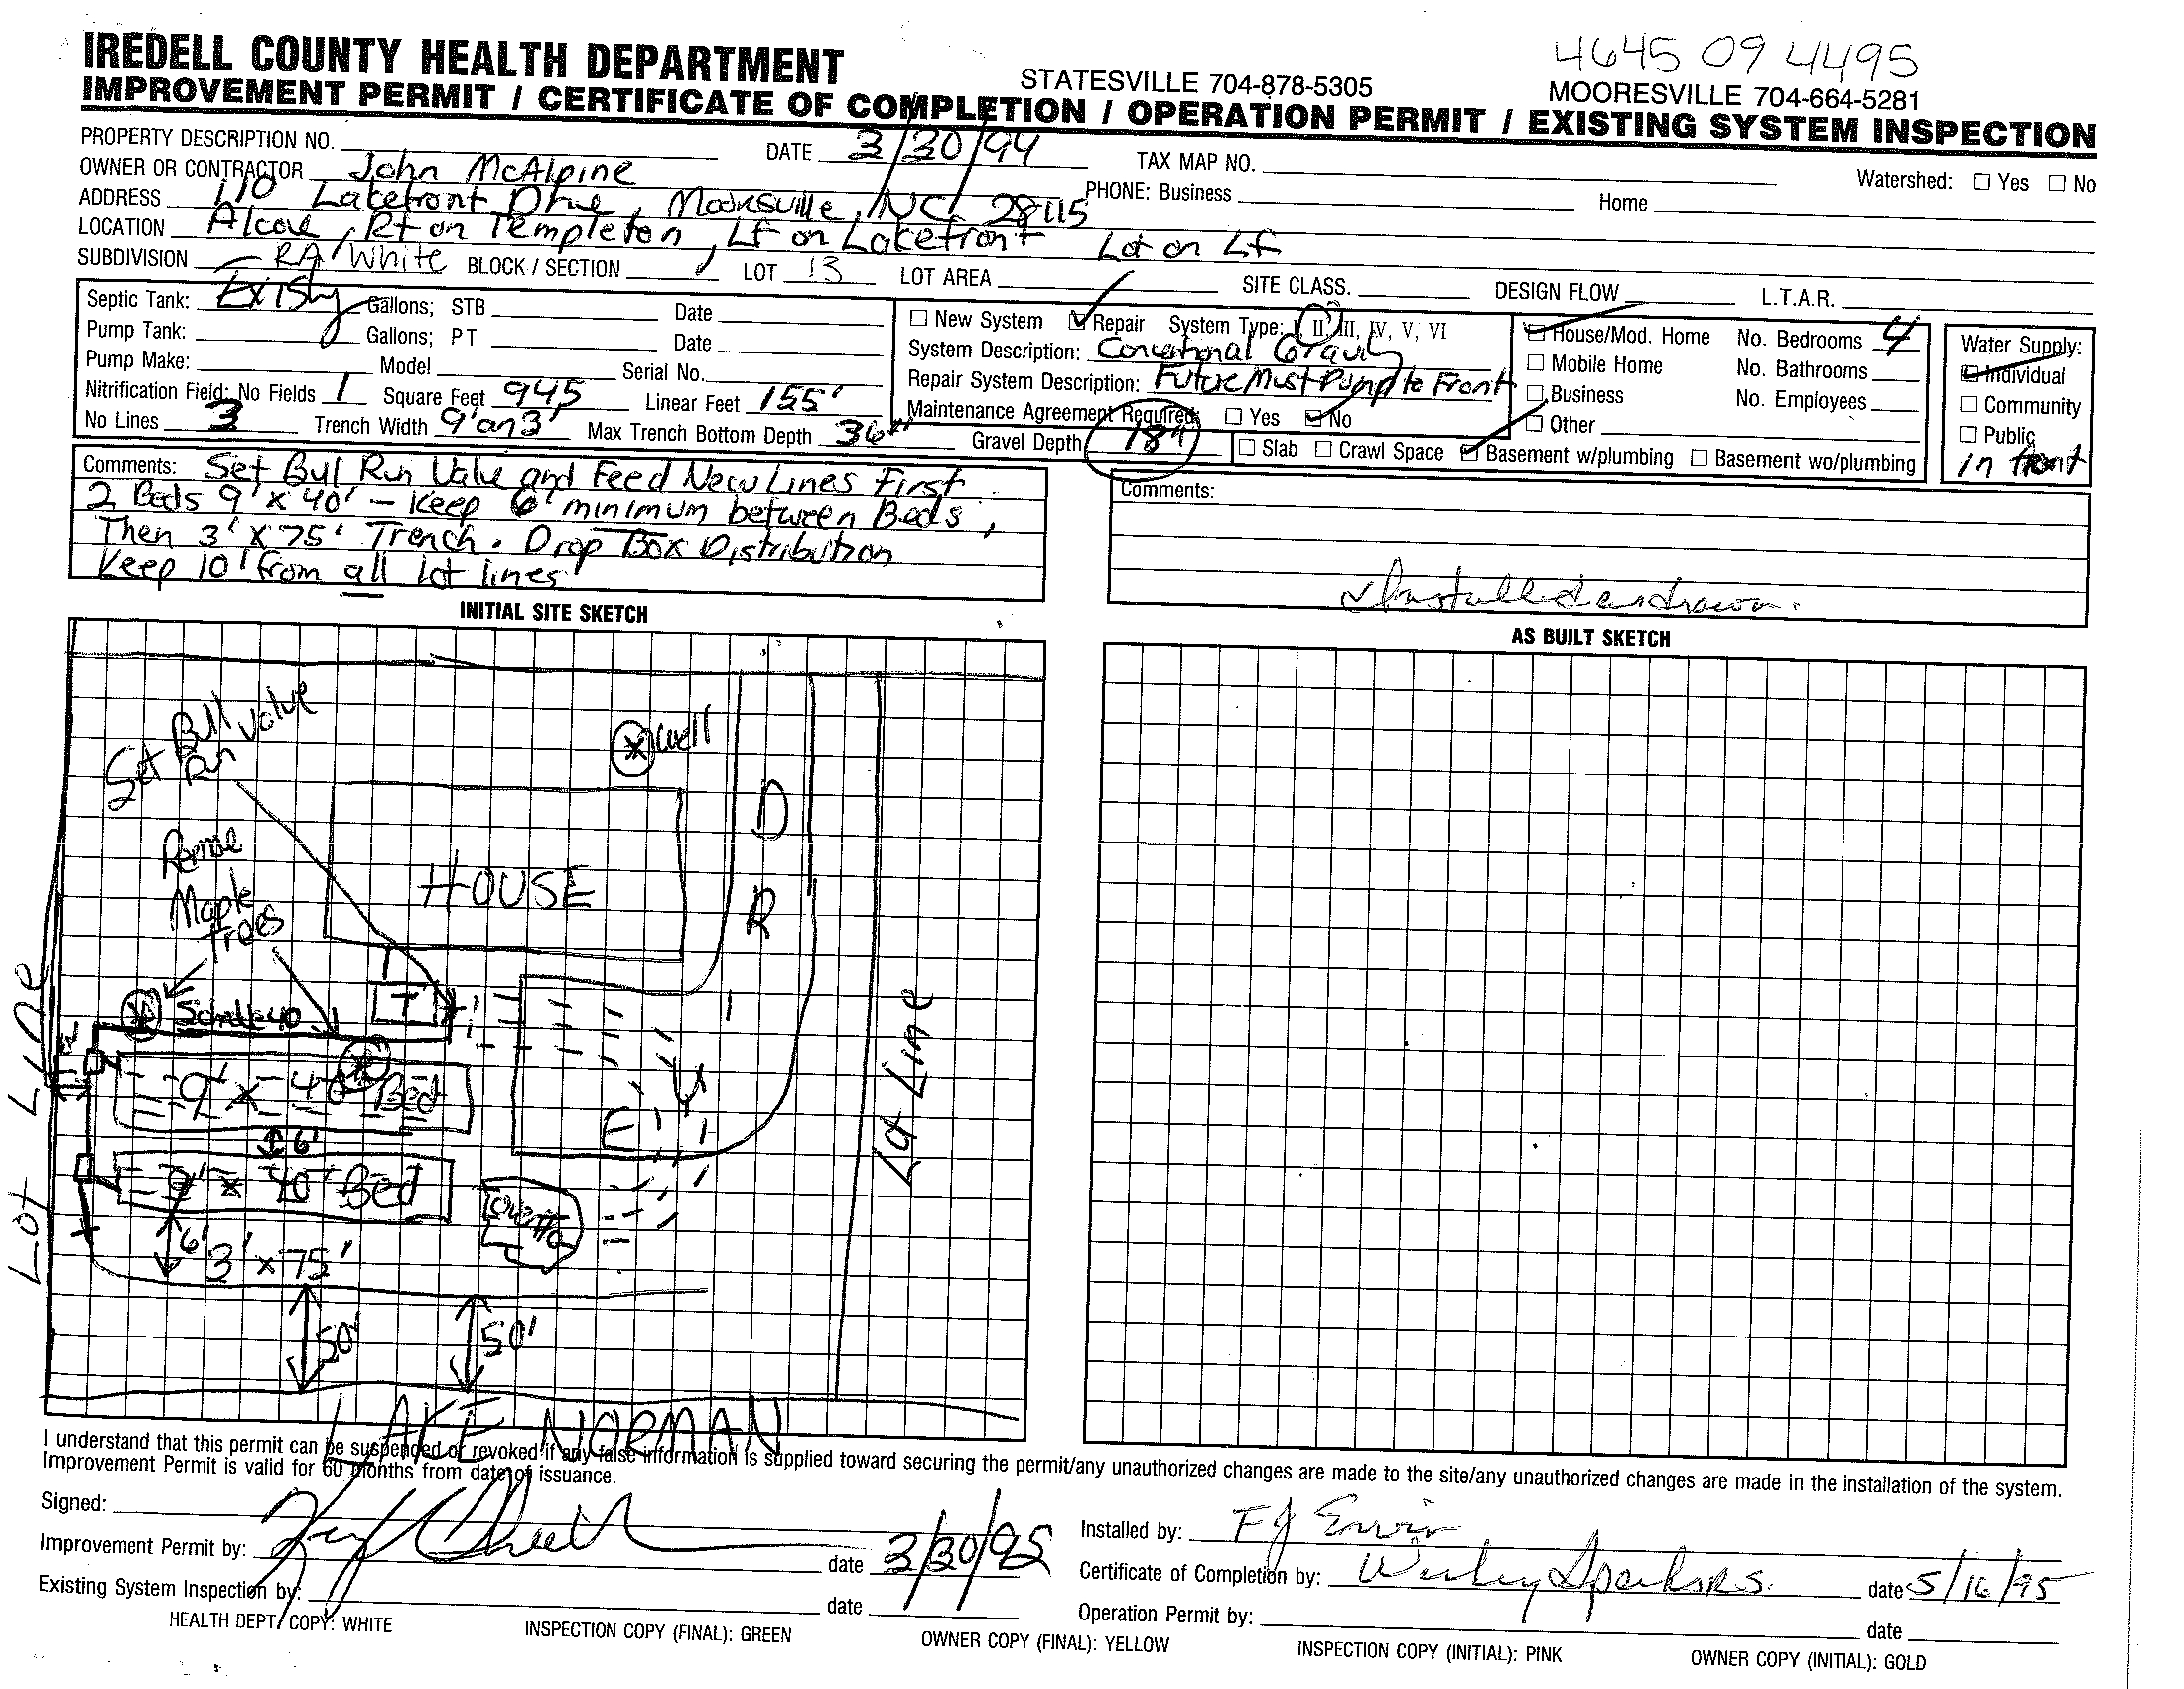 IREDELL COUNTY HEALTH DEPARTMENT
4645 09 4495
STATESVILLE 704-878-5305 MOORESVILLE 704-664-5281
IMPROVEMENT PERMIT / CERTIFICATE OF COMPLETION / OPERATION PERMIT / EXISTING SYSTEM INSPECTION
PROPERTY DESCRIPTION NO. DATE 3/30/94 TAX MAP NO. Watershed: ☐ Yes ☐ No
OWNER OR CONTRACTOR John McAlpine PHONE: Business Home
ADDRESS 110 Lakefront Drive, Mooresville, NC 28115
LOCATION Alcove, Rt on Templeton, Lf on Lakefront Lot on Lf
SUBDIVISION RA White BLOCK / SECTION LOT 13 LOT AREA SITE CLASS. DESIGN FLOW L.T.A.R.
Septic Tank: Existing Gallons; STB Date
Pump Tank: Gallons; PT Date
Pump Make: Model Serial No.
Nitrification Field: No Fields 1 Square Feet 945 Linear Feet 155'
No Lines 3 Trench Width 9' an 3' Max Trench Bottom Depth 36" Gravel Depth 18"
☐ New System ☑ Repair System Type: I, II, III, IV, V, VI
System Description: Conventional Gravity
Repair System Description: Future Must Pump to Front
Maintenance Agreement Required: ☐ Yes ☑ No
☑ House/Mod. Home No. Bedrooms 4
☐ Mobile Home No. Bathrooms
☐ Business No. Employees
☐ Other
☐ Slab ☐ Crawl Space ☑ Basement w/plumbing ☐ Basement wo/plumbing
Water Supply:
☑ Individual
☐ Community
☐ Public
in front
Comments: Set Bull Run Valve and Feed New Lines First
2 Beds 9' x 40' - Keep 6' minimum between Beds,
Then 3' x 75' Trench. Drop Box Distribution
Keep 10' from all lot lines
Comments:
✓ Installed as drawn.
INITIAL SITE SKETCH
AS BUILT SKETCH
Set Bull Run Valve
Well
Remove Maple Trees
HOUSE
D
R
T
9' x 40' Bed
6'
9' x 40' Bed
6'
3' x 75'
50'
50'
Lot Line
Lot Line
LAKE NORMAN
I understand that this permit can be suspended or revoked if any false information is supplied toward securing the permit/any unauthorized changes are made to the site/any unauthorized changes are made in the installation of the system.
Improvement Permit is valid for 60 months from date of issuance.
Signed:
Improvement Permit by: date 3/30/95
Existing System Inspection by: date
Installed by: F J Ervin
Certificate of Completion by: Wesley Sparks R.S. date 5/16/95
Operation Permit by: date
HEALTH DEPT/ COPY: WHITE INSPECTION COPY (FINAL): GREEN OWNER COPY (FINAL): YELLOW INSPECTION COPY (INITIAL): PINK OWNER COPY (INITIAL): GOLD